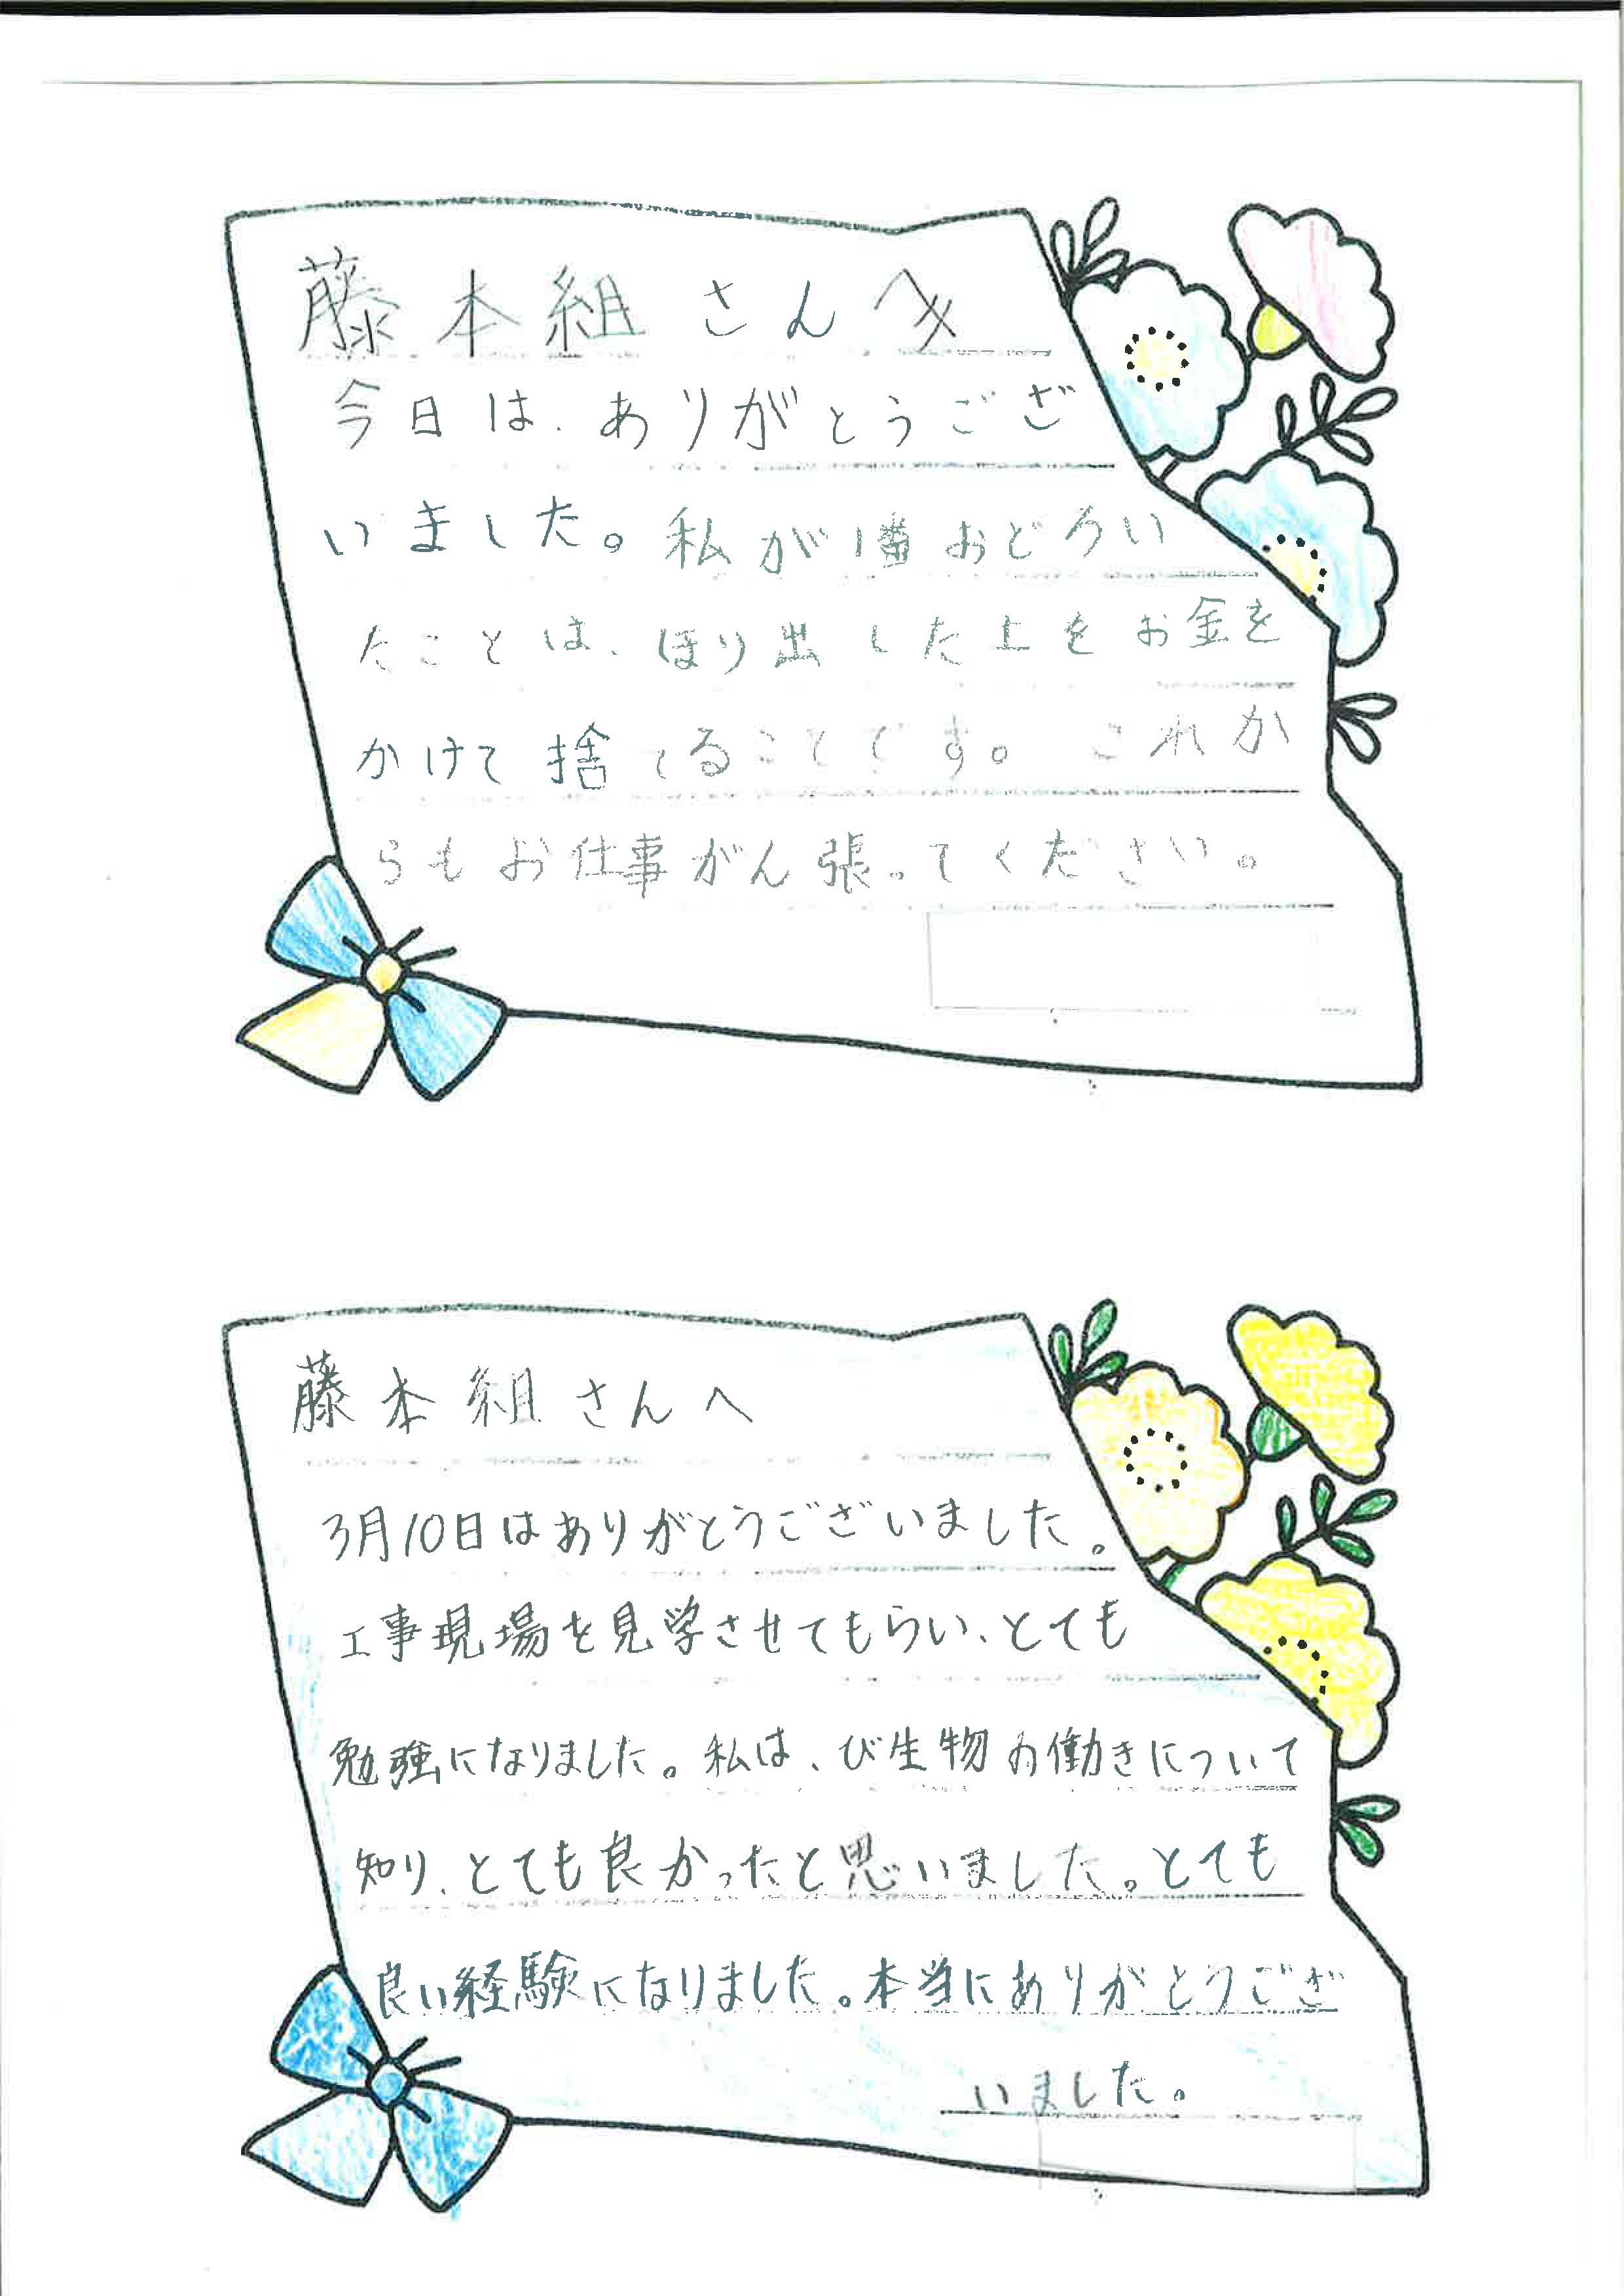 藤本組さんへ
今日は、ありがとうござ
いました。私が1番おどろい
たことは、ほり出した土をお金を
かけて捨てることです。これか
らもお仕事がん張ってください。
藤本組さんへ
3月10日はありがとうございました。
工事現場を見学させてもらい、とても
勉強になりました。私は、び生物の働きについて
知り、とても良かったと思いました。とても
良い経験になりました。本当にありがとうござ
いました。